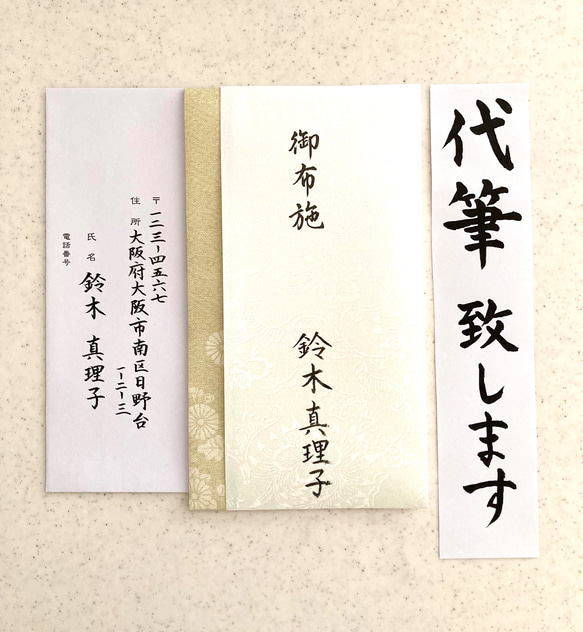 代筆 致します
御布施
鈴木真理子
〒 一二三-四五六七
住所 大阪府大阪市南区日野台
一-二-三
氏名 鈴木 真理子
電話番号